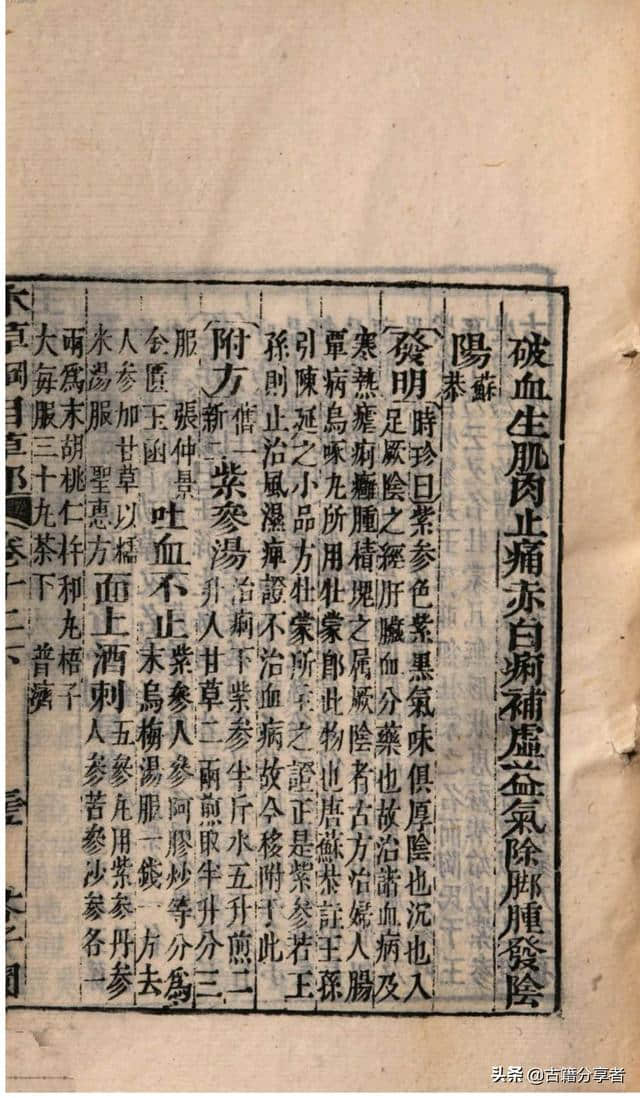 破血生肌肉止痛赤白痢補虛益氣除脚腫發陰
陽蘇恭
發明時珍曰紫參色紫黑氣味俱厚陰也沉也入
足厥陰之經肝臟血分藥也故治諸血病及
寒熱瘧痢癰腫積塊之屬厥陰者古方治婦人腸
覃病烏啄丸所用牡蒙卽此物也唐蘇恭註王孫
引陳延之小品方牡蒙所主之證正是紫參若王
孫則止治風濕痺證不治血病故今移附于此
附方舊一新二紫參湯治痢下紫參半斤水五升煎二
升入甘草二兩煎取半升分三
服張仲景金匱玉函吐血不止紫參人參阿膠炒等分爲
末烏梅湯服一錢一方去
人參加甘草以糯米湯服聖惠方面上酒刺五參丸用紫參丹參
人參苦參沙參各一
兩爲末胡桃仁杵和丸梧子
大每服三十丸茶下普濟
本草綱目草部卷十二下
頭条 @古籍分享者